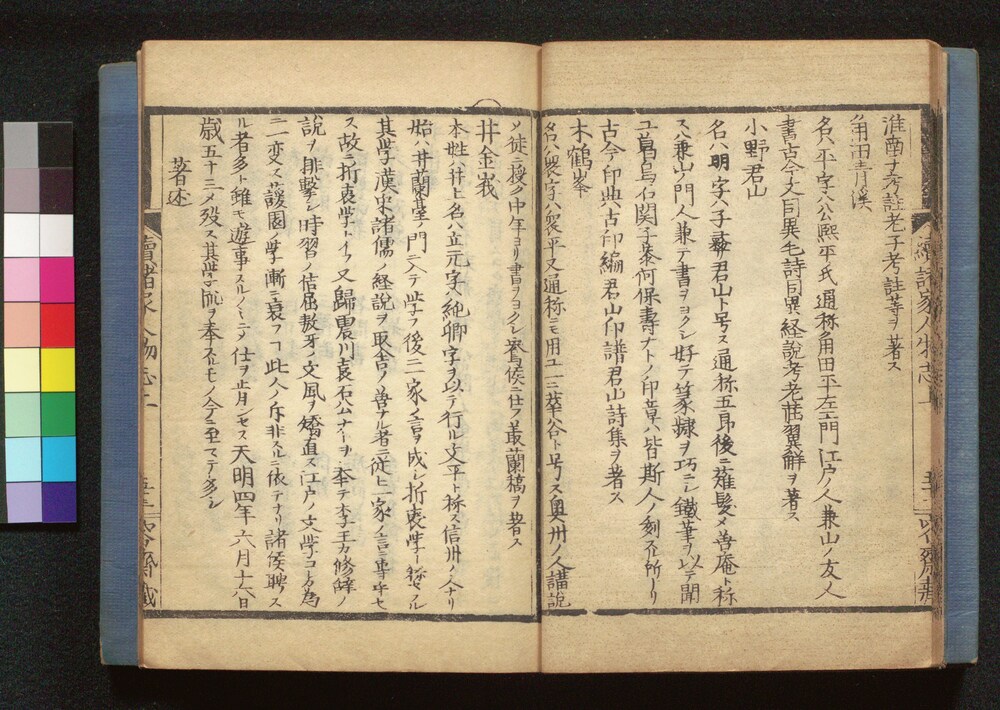 淮南子考註老子考註等ヲ著ス
角田青溪
名ハ平字ハ公熙平氏通称角田平左エ門江戸ノ人兼山ノ友人
書古今文同異毛詩同異経説考老荘翼解ヲ著ス
小野君山
名ハ明字ハ子彜君山ト号ス通称五郎後ニ薙髪〆善庵ト称
ス兼山ノ門人兼テ書ヲヨクシ好テ篆隷ヲ巧ニシ鐵筆ヲ以テ聞
ユ烏石関子業何保壽ナトノ印章ハ皆斯人ノ刻スル所ナリ
古今印典古印編君山印譜君山詩集ヲ著ス
木鶴峯
名ハ衆字ハ衆平又通称ニモ用ユ一ニ華谷ト号ス奥州ノ人講説
〆徒ニ授ク中年ヨリ書ヲヨクシ候ニ仕フ叢蘭稿ヲ著ス
井金峩
本姓ハ井上名ハ立元字ハ純卿字ヲ以テ行ル文平ト称ス信州ノ人ナリ
始ハ井蘭臺ノ門ニ入テ学フ後ニ一家ノ言ヲ成シ折衷学ト称セラル
其学漢宋諸儒ノ経説ヲ取舎シ善ナル者ニ従ヒ一家ノ言ニ専ナセ
ス故ニ折衷学ト云フ又歸震川袁石公ナトヲ奉テ李王カ修辞ノ
説ヲ排撃シ時習ノ佶屈敖牙ノ文風ヲ矯直ス江戸ノ文学コレカ為
ニ一変ス蘐園ノ学漸ニ衰フヿ此人ノ斥非スルニ依テナリ諸侯聘ス
ル者多ト雖モ遊事スルノミニテ仕ヲ肯ンセス天明四年六月十六日
歳五十三〆殁ス其学流ヲ奉スルモノ今ニ至マテ多シ
著述
續諸家人物志上